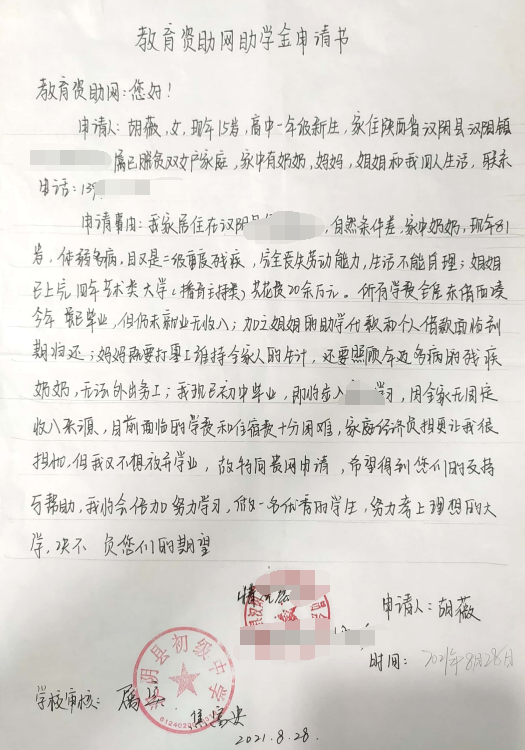 教育资助网助学金申请书
教育资助网:您好!
申请人:胡薇,女,现年15岁,高中一年级新生,家住陕西省汉阴县汉阴镇
属已脱贫双女户家庭,家中有奶奶,妈妈,姐姐和我四人生活,联系
电话:139
申请事由:我家居住在汉阴县 ,自然条件差,家中奶奶,现年81
岁,体弱多病,且又是二级重度残疾,完全丧失劳动能力,生活不能自理;姐姐
已上完四年艺术类大学(播音主持类)共花费20余万元。所有学费全是东借西凑
今年 虽已毕业,但仍未就业无收入;加之姐姐的助学代款和个人借款面临到
期归还;妈妈既要打零工维持全家人的生计,还要照顾年迈多病的残疾
奶奶,无法外出务工;我现已初中毕业,即将步入 学习,因全家无固定
收入来源,目前面临的学费和住宿费十分困难,家庭经济负担更让我很
担忧,但我又不想放弃学业,故特向贵网申请,希望得到您们的支持
与帮助,我将会倍加努力学习,做一名优秀的学生,努力考上理想的大
学,决不 负您们的期望
情况
申请人:胡薇
时间:2021年8月28日
阴县初级中学
学校审核:属实
2021.8.28.